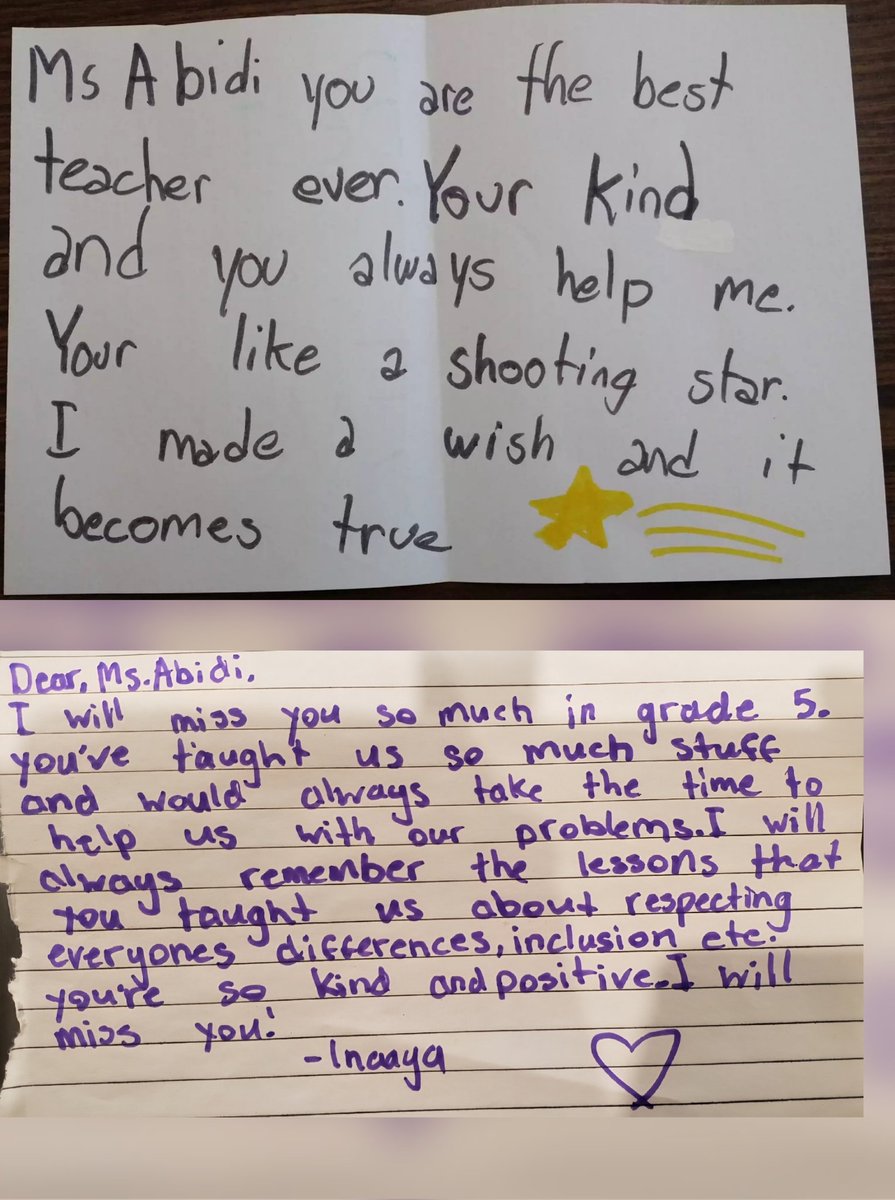 Ms Abidi you are the best
teacher ever. Your kind
and you always help me.
Your like a shooting star.
I made a wish and it
becomes true
Dear, Ms. Abidi,
I will miss you so much in grade 5.
you've taught us so much stuff
and would always take the time to
help us with our problems. I will
always remember the lessons that
you taught us about respecting
everyones differences, inclusion etc.
you're so kind and positive. I will
miss you!
-Inaaya